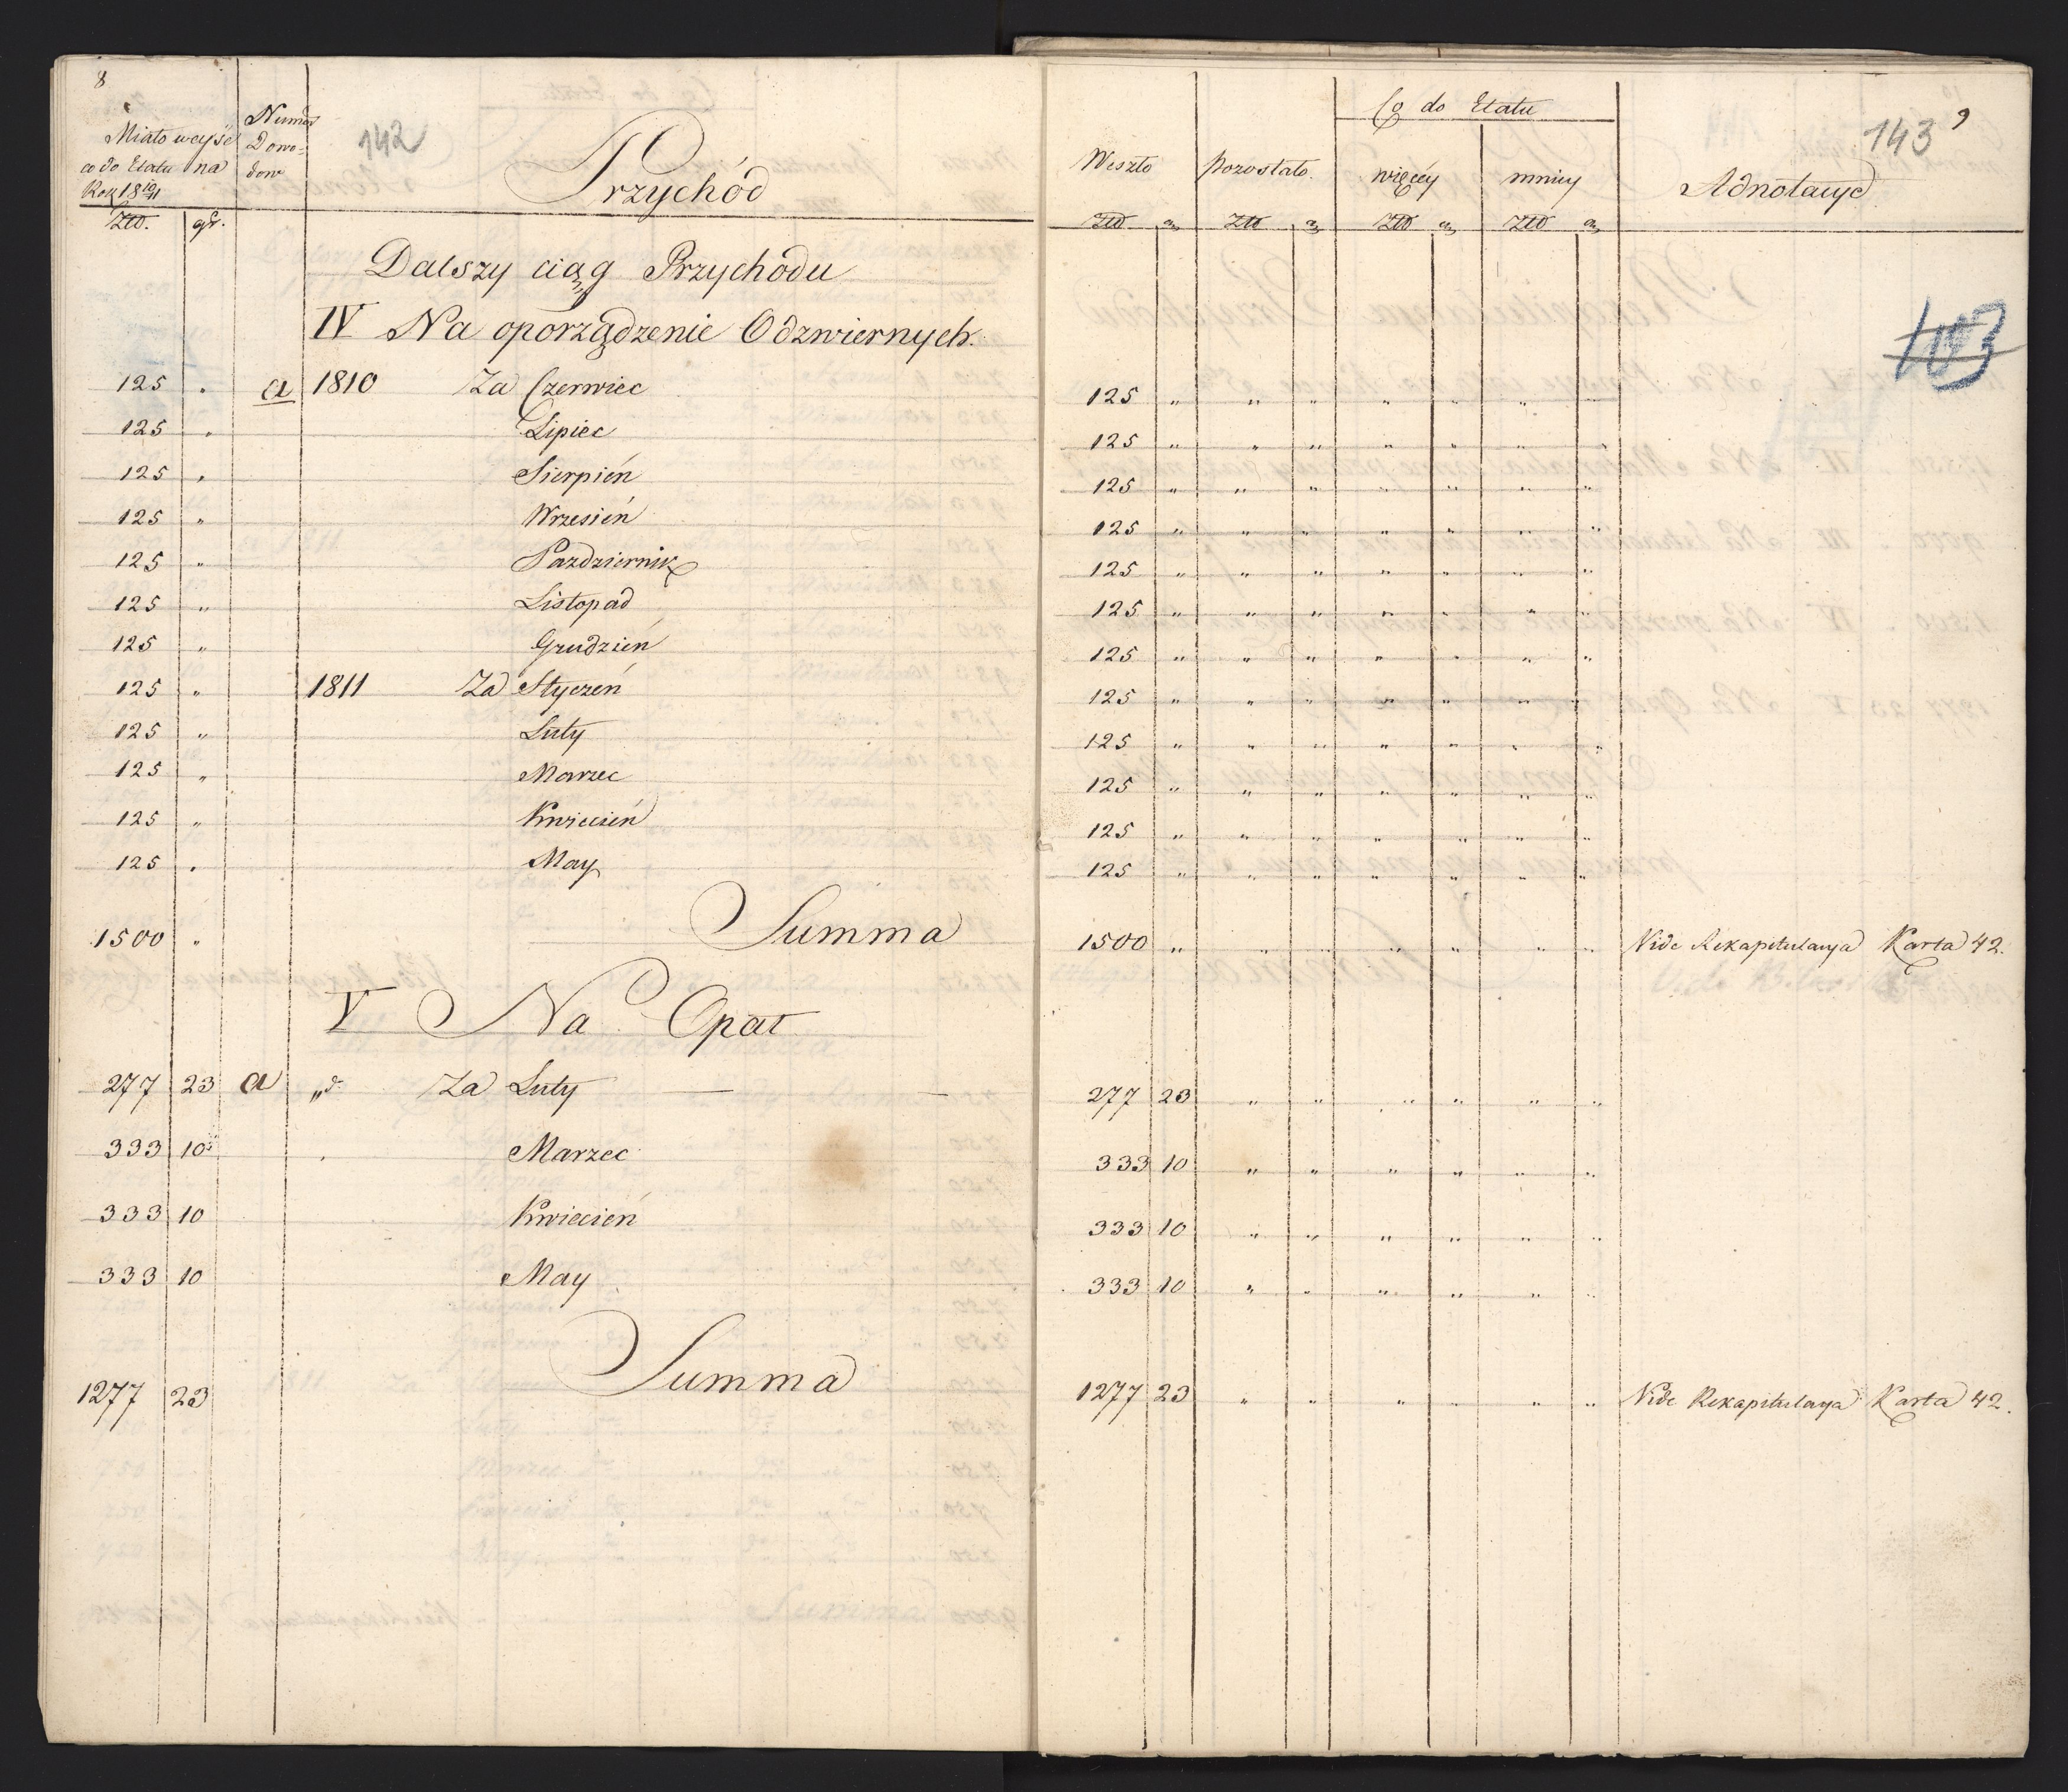 8
Miało weyść
co do Etatu na
Rok 18 10/11
Złł. | gr.
Numer
Dowo=
dow
142
Przychód
Dalszy ciąg Przychodu
IV Na oporządzenie Odzwiernych.
125 . a 1810 Za Czerwiec
125 . Lipiec
125 . Sierpień
125 " Wrzesień
125 " Pazdziernik
125 " Listopad
125 " Grudzień
125 " 1811 Za Styczeń
125 " Luty
125 " Marzec
125 " Kwiecień
125 . May
1500 " Summa
V Na Opał
277 23 a " d. Za Luty
333 10 Marzec
333 10 Kwiecień
333 10 May
1277 23 Summa
143 9
Co do Etatu
Weszło | pozostało. | więcéy | mniey | Adnotacye
Złł | Złł | Złł | Złł
103
125 " " " " " "
125 " " " " " " "
125 " " " " " " "
125 " " " " " " "
125 " " " " " " "
125 " " " " " " "
125 " " " " " " "
125 " " " " " " "
125 " " " " " " "
125 " " " " " " "
125 " " " " " " "
125 " " " " " " "
1500 " " " " " " " Vide Rekapitulacya Karta 42.
277 23 " " " " " "
333 10 " " " " " "
333 10 " " " " " "
333 10 " " " " " "
1277 23 " " " " " " Vide Rekapitulacya Karta 42.